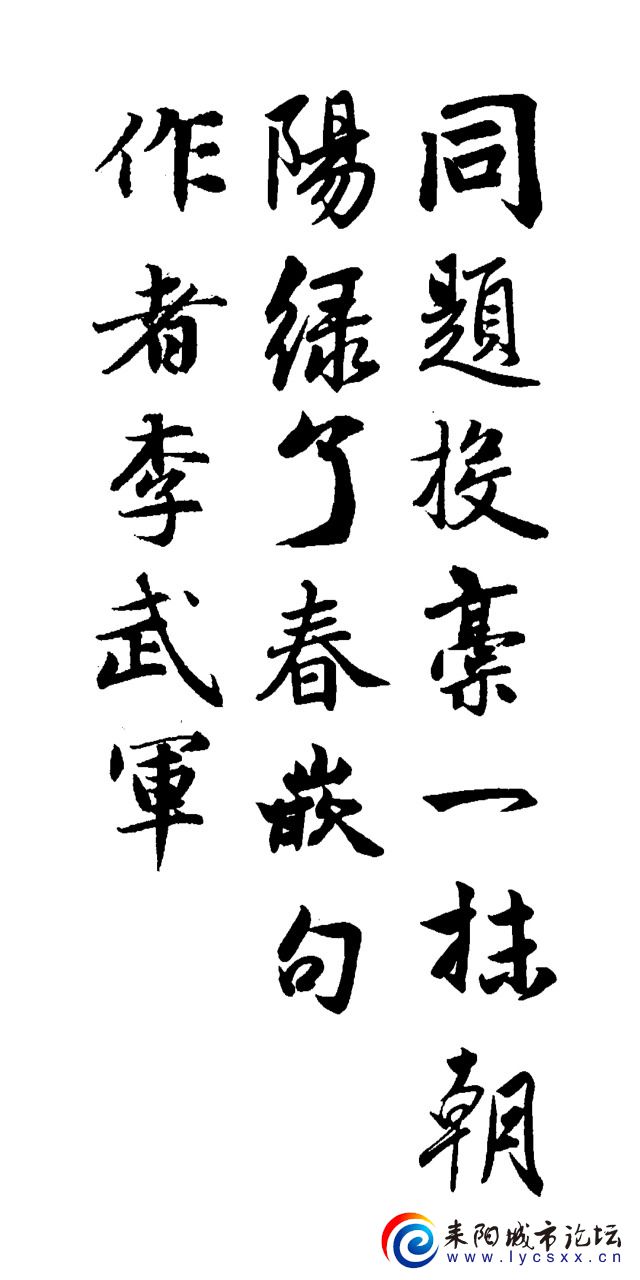 同題投稾一抹朝
陽緑了春嵌句
作者李武軍
耒阳城市论坛
www.lycsxx.cn